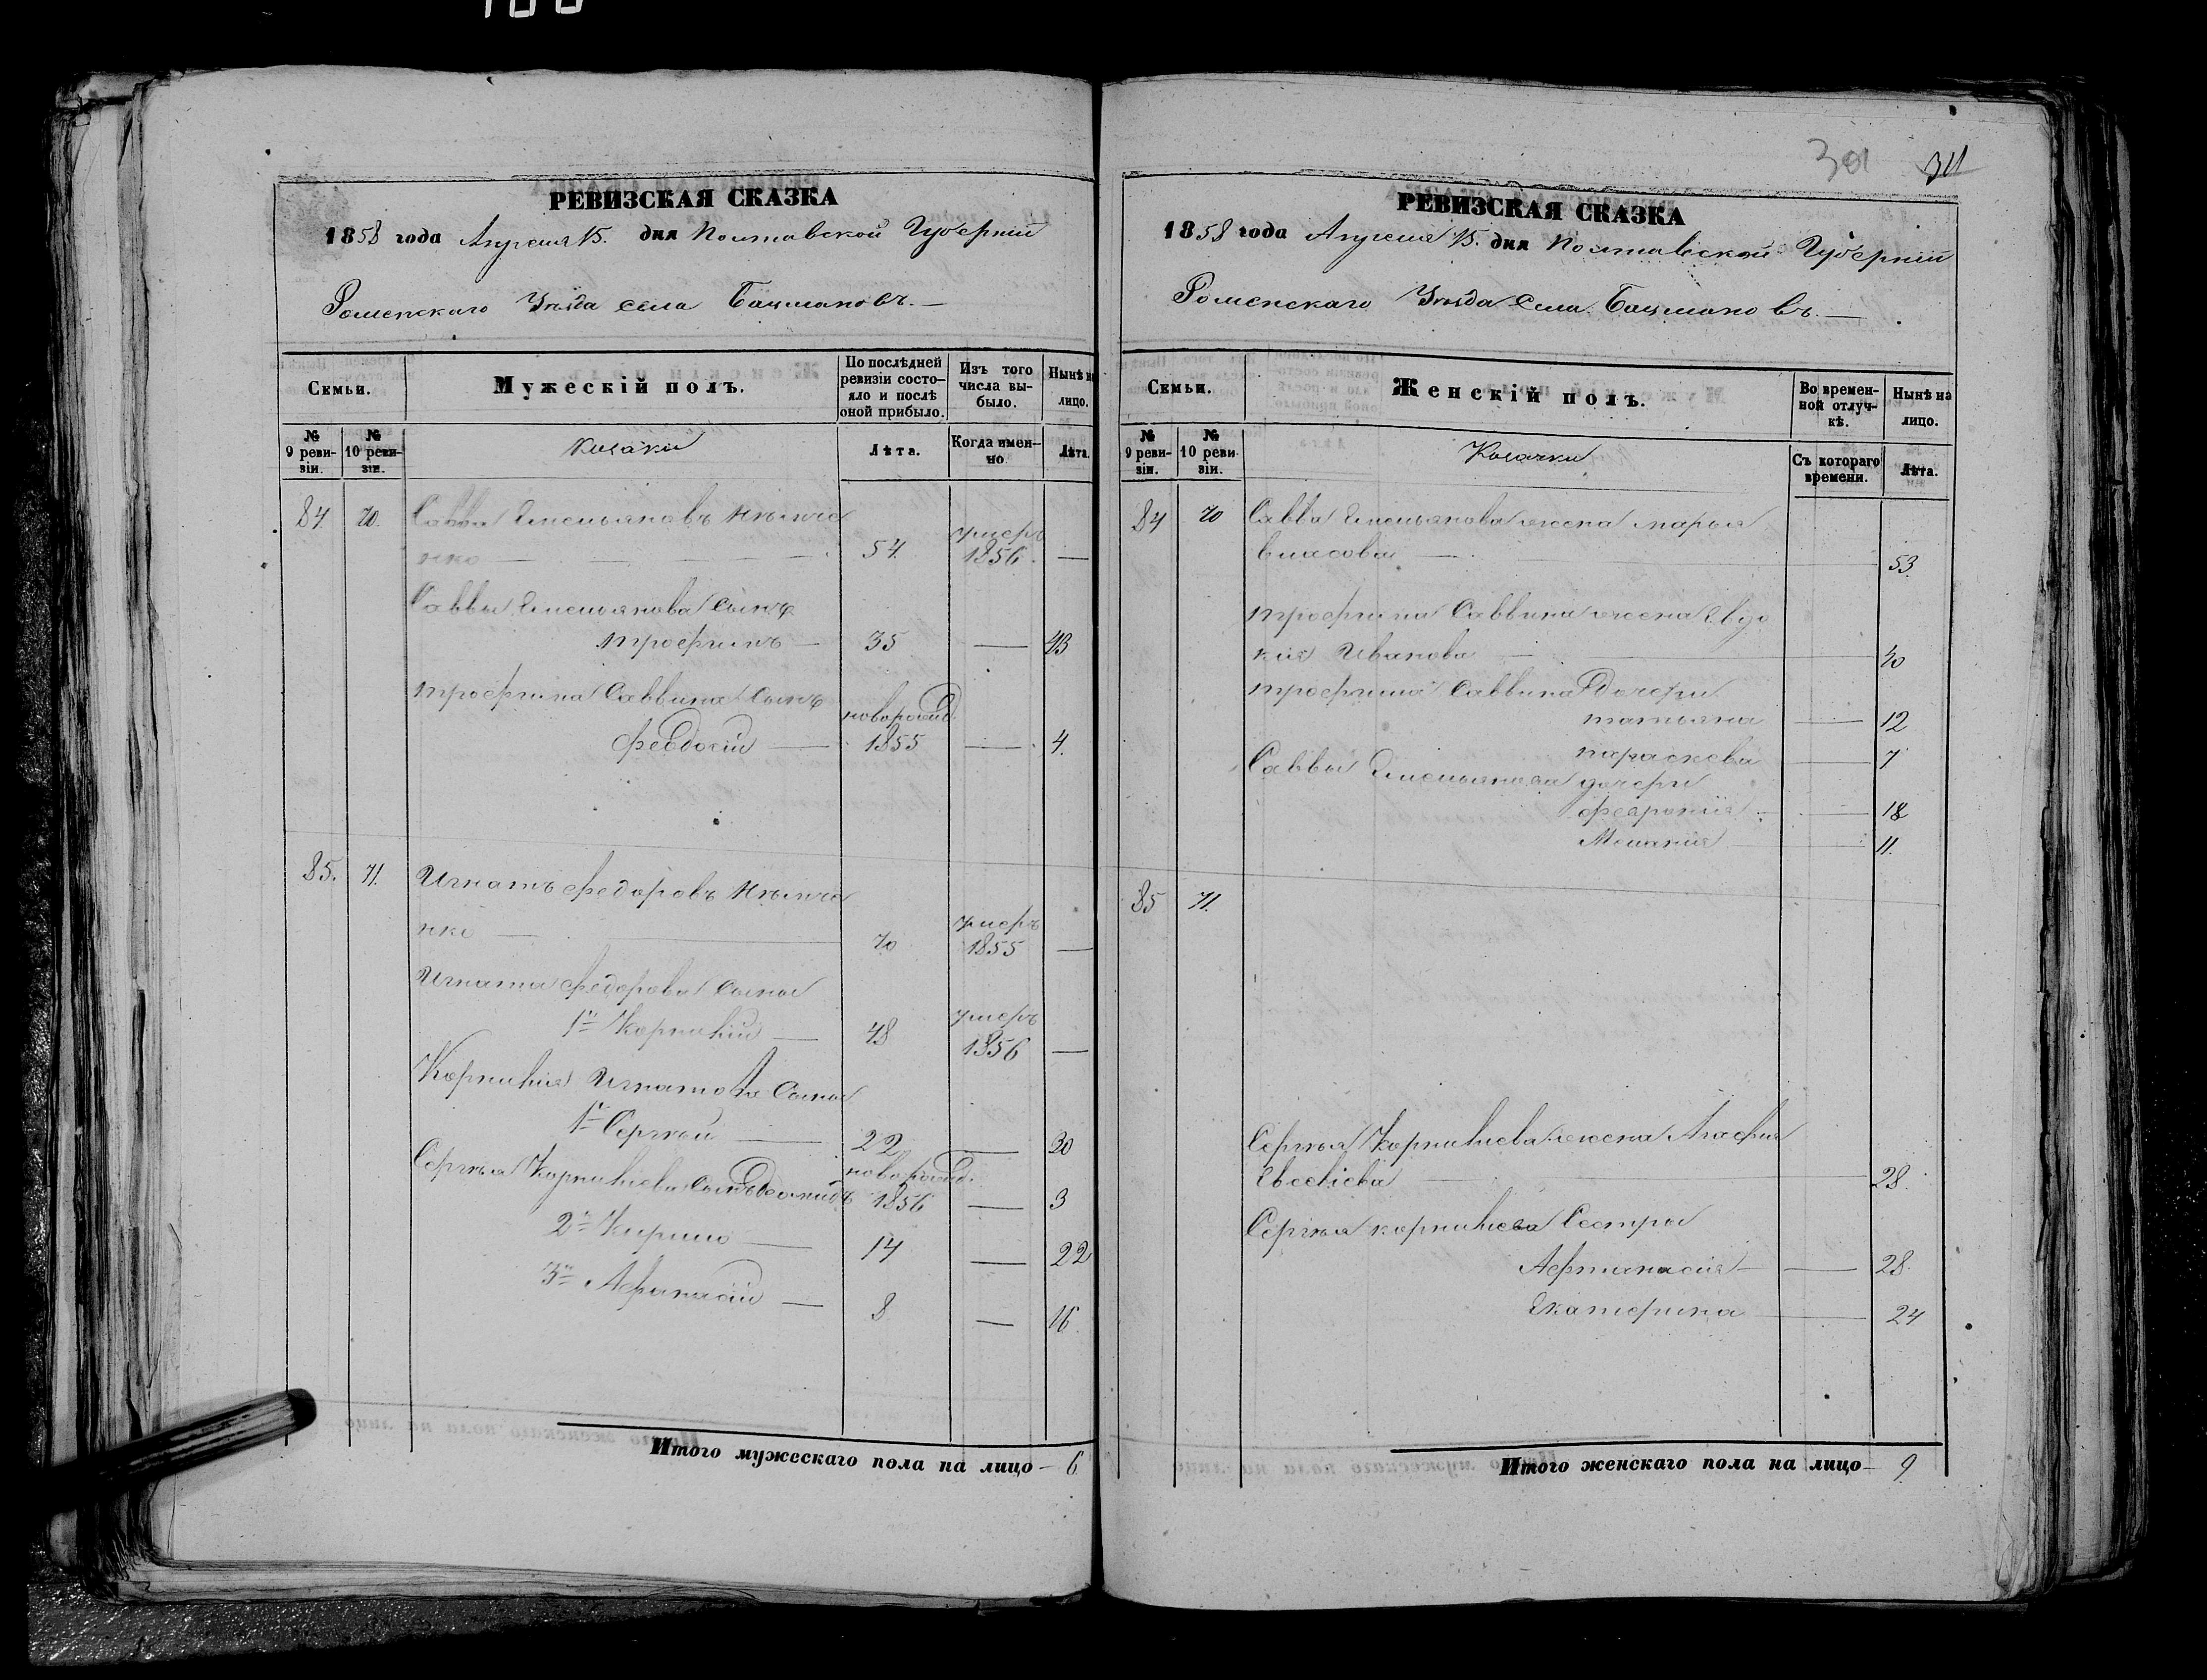 РЕВИЗСКАЯ СКАЗКА
1858 года Апреля 15. дня Полтавской Губерніи
Роменскаго Уѣзда села Бацмановъ. —
Семьи.
Мужескій полъ.
По послѣдней ревизіи состо-
яло и послѣ
оной прибыло.
Изъ того
числа вы-
было.
Нынѣ на
лицо.
№
9 реви-
зіи.
№
10 реви-
зіи.
Козаки
Лѣта.
Когда имен-
но
Лѣта.
84. 70. Савва Емельяновъ
нко — 54. умеръ 1856. —
Саввы Емельянова сынъ
Трофимъ — 35 — 43
Трофима Саввина сынъ
Феодосій — новорожд. 1855 — 4.
85. 71. Игнатъ Федоровъ
нко — 70 умеръ 1855 —
Игната Федорова сыны
1й Корнилій — 48 умеръ 1856 —
Корнилія Игнатова сыны
1й Сергѣй — 22 — 30
Сергѣя Корниліева сынъ новорожд. 1856 — 3
2й Кирило — 14 — 22
3й Афанасій — 8 — 16
Итого мужескаго пола на лицо — 6
301
РЕВИЗСКАЯ СКАЗКА
1858 года Апреля 15. дня Полтавской Губерніи
Роменскаго Уѣзда села Бацмановъ. —
Семьи.
Женскій полъ.
Во времен-
ной отлуч-
кѣ.
Нынѣ на
лицо.
№
9 реви-
зіи.
№
10 реви-
зіи.
Козачки
Съ котораго
времени.
Лѣта.
84 70 Савы Емельянова жена Марья
Власова — 53.
Трофима Саввина жена Евдо
кія Иванова — 40
Трофима Саввина дочери
Татьяна — 12
Параскева — 7
Саввы Емельянова дочери
Феврония — 18
Меланія — 11.
85 71.
Сергѣя Корниліева жена Агафія
Евсевіева — 28.
Сергѣя Корниліева сестры
28.
Екатерина — 24
Итого женскаго пола на лицо — 9.